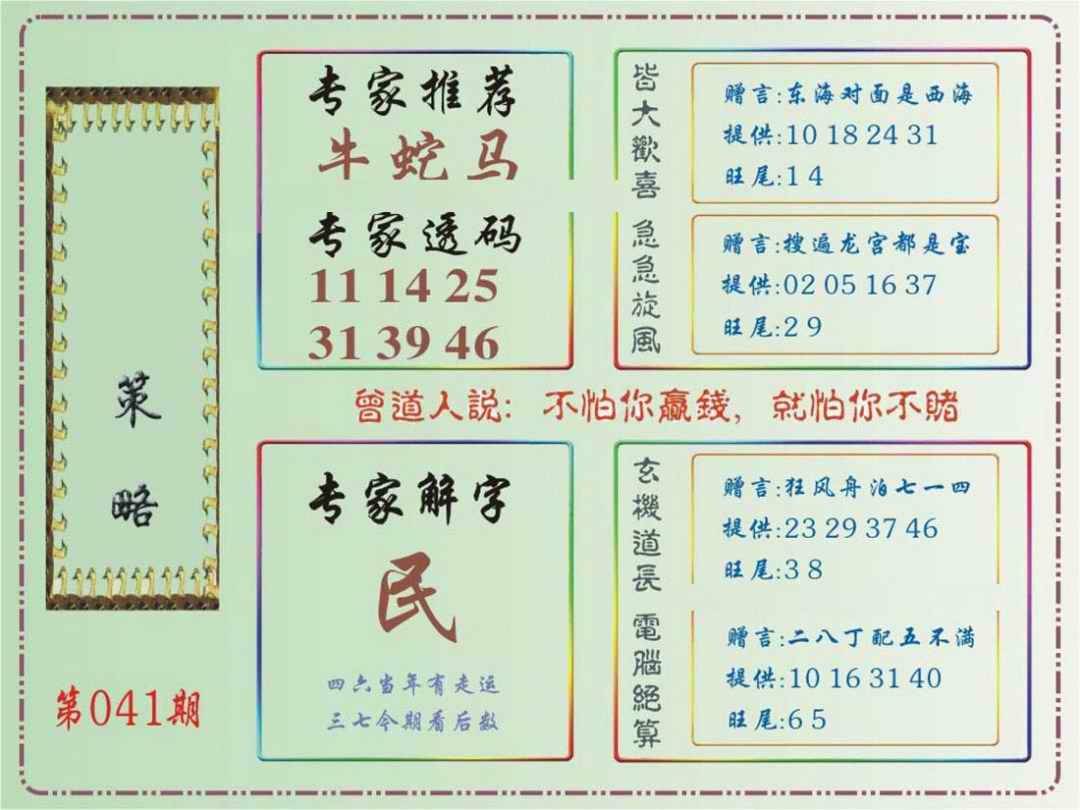 策略
第041期
专家推荐
牛蛇马
专家透码
11 14 25
31 39 46
皆大歡喜
赠言:东海对面是西海
提供:10 18 24 31
旺尾:1 4
急急旋風
赠言:搜遍龙宫都是宝
提供:02 05 16 37
旺尾:2 9
曾道人説: 不怕你贏錢, 就怕你不賭
专家解字
民
四六当年有走运
三七今期看后数
玄機道長
赠言:狂风舟泊七一四
提供:23 29 37 46
旺尾:3 8
電腦絕算
赠言:二八丁配五不满
提供:10 16 31 40
旺尾:6 5